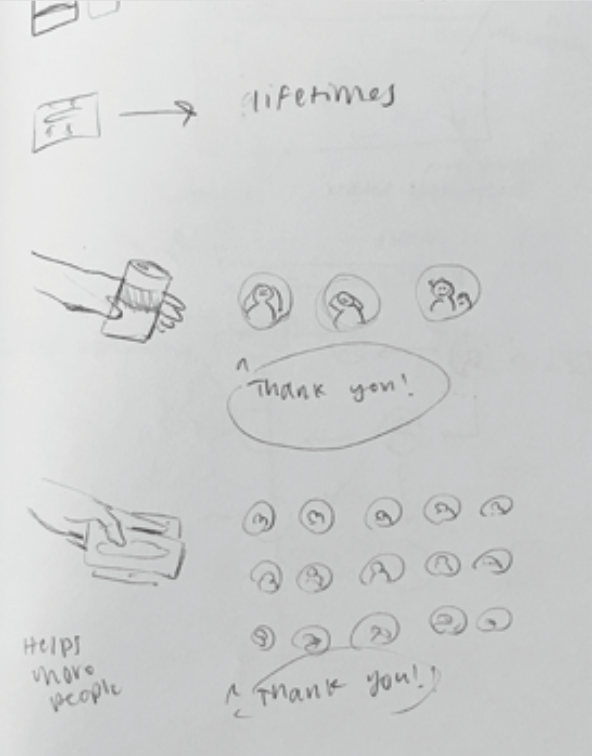 lifetimes
Thank you!
Helps
more
people
Thank you!